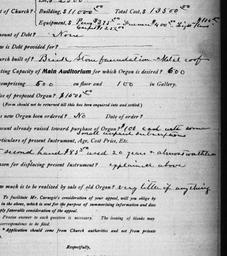 of Church? Building, $11,000 Total Cost, $13500
Equipment, $
ount of Debt? None
w is Debt provided for?
rch built of? Brick Stone foundation Slate roof
ting Capacity of Main Auditorium for which Organ is desired? 600
omprising 500 on floor and 100 in Gallery.
ice of proposed Organ?
(Form should not be returned till this has been enquired into and settled)
new Organ been ordered? No Date of order?
ount already raised toward purchase of Organ?
rticulars of present Instrument, Age, Cost Price, Etc.
second hand $85 used 20 years
son for displacing present Instrument? explained above
w much is to be realized by sale of old Organ? very little if anything
To facilitate Mr. Carnegie's consideration of your appeal, will you oblige by
in the above, which is sent for the purpose of summarizing information and thus
ply favorable consideration of the appeal.
Precise answer to each question is necessary. The leaving of blanks may
correspondence to be filed.
Application should come from Church authorities and not from private
Respectfully,